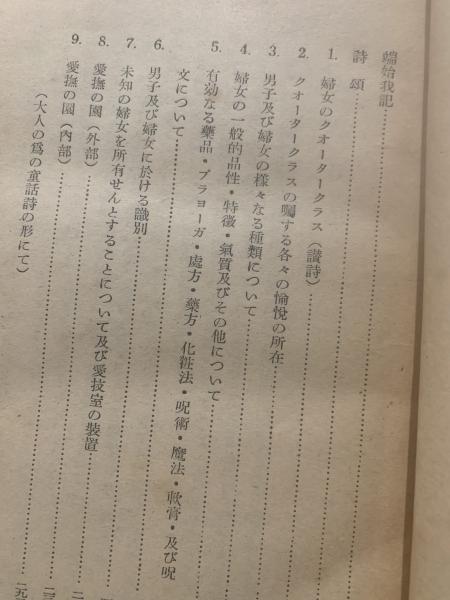 端始我記
詩頌
1. 婦女のクオータークラス（讃詩）
2. クオータークラスの囑する各々の愉悅の所在
3. 男子及び婦女の樣々なる種類について
4. 婦女の一般的品性・特徵・氣質及びその他について
5. 有効なる藥品・プラヨーガ・處方・藥方・化粧法・呪術・魔法・軟膏・及び呪
文について
6. 男子及び婦女に於ける識別
7. 未知の婦女を所有せんとすることについて及び愛技室の裝置
8. 愛撫の園（外部）
9. 愛撫の園（內部）
（大人の爲の童話詩の形にて）